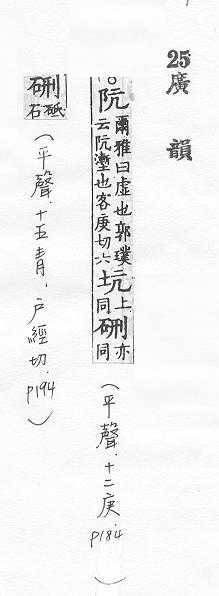 25 廣韻
阬爾雅曰虛也郭璞云阬壍也客庚切六坑上同硎亦同
(平聲.十二庚 p184)
硎砥石
(平聲.十五青,戶經切.p194)